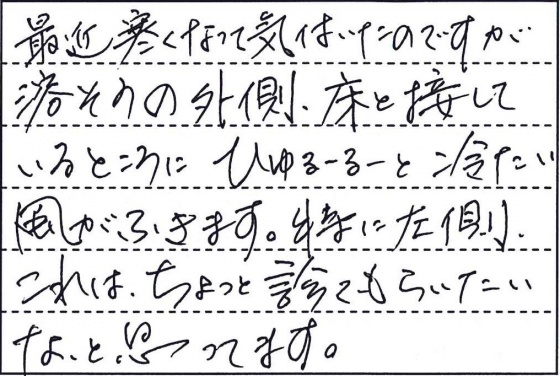 最近寒くなって気付いたのですが
浴そうの外側、床と接して
いるところに ひゅるーるーと 冷たい
風がふきます。特に左側、
これは、ちょっと診てもらいたい
な、と思ってます。